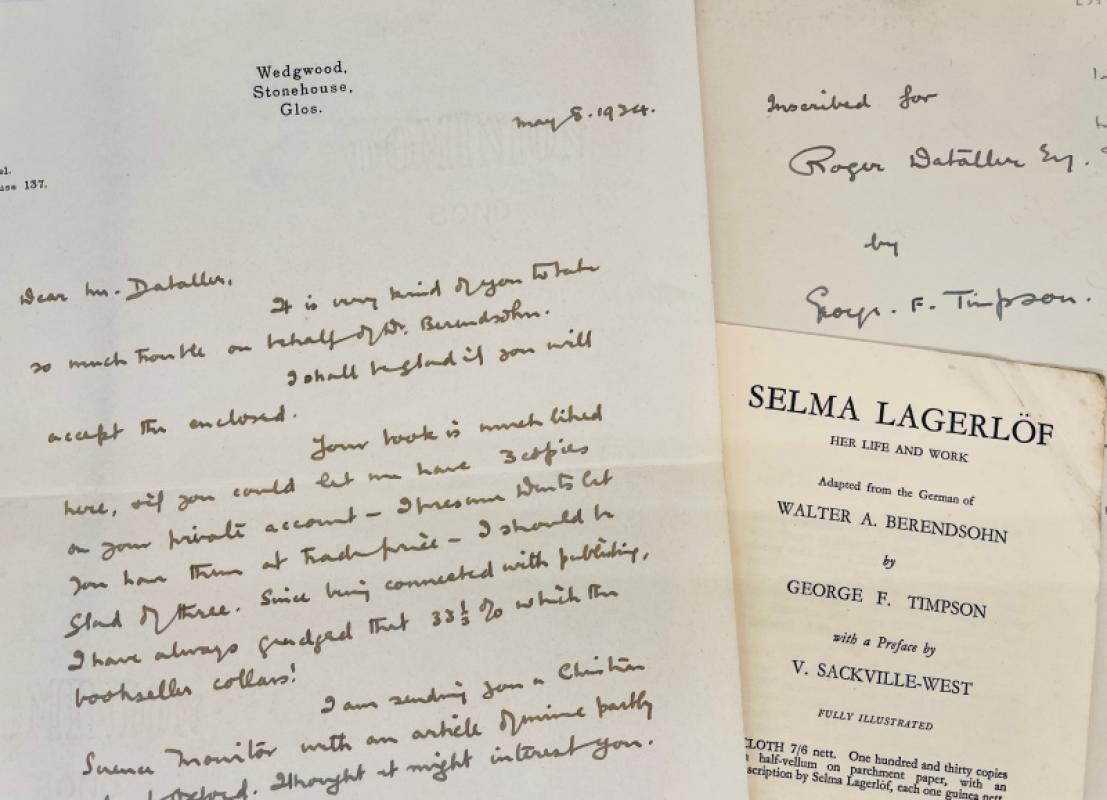 Wedgwood,
Stonehouse,
Glos.
May 8. 1934.
el.
use 137.
Dear Mr. Dataller,
It is very kind of you to take
so much trouble on behalf of Dr. Berendsohn.
I shall be glad if you will
accept the enclosed.
Your book is much liked
here, & if you could let me have 3 copies
on your private account – I presume Dents let
you have them at trade price – I should be
glad of three. Since being connected with publishing,
I have always grudged that 33⅓ % which the
bookseller collars!
I am sending you a Christian
Science Monitor with an article of mine partly
I thought it might interest you.
Inscribed for
Roger Dataller Esq.
by
George. F. Timpson.
SELMA LAGERLÖF
HER LIFE AND WORK
Adapted from the German of
WALTER A. BERENDSOHN
by
GEORGE F. TIMPSON
with a Preface by
V. SACKVILLE-WEST
FULLY ILLUSTRATED
CLOTH 7/6 nett. One hundred and thirty copies
half-vellum on parchment paper, with an
scription by Selma Lagerlöf, each one guinea nett